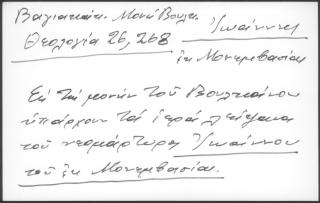 Βαγιακάκ. Μονή Βουλκ.
Θεολογία 26, 268 Ἰωάννης
ἐκ Μονεμβασίας
Εἰς τήν μονήν τοῦ Βουλκάνου
ὑπάρχουν τά ἱερά λείψανα
τοῦ νεομάρτυρος Ἰωάννου
τοῦ ἐκ Μονεμβασίας.